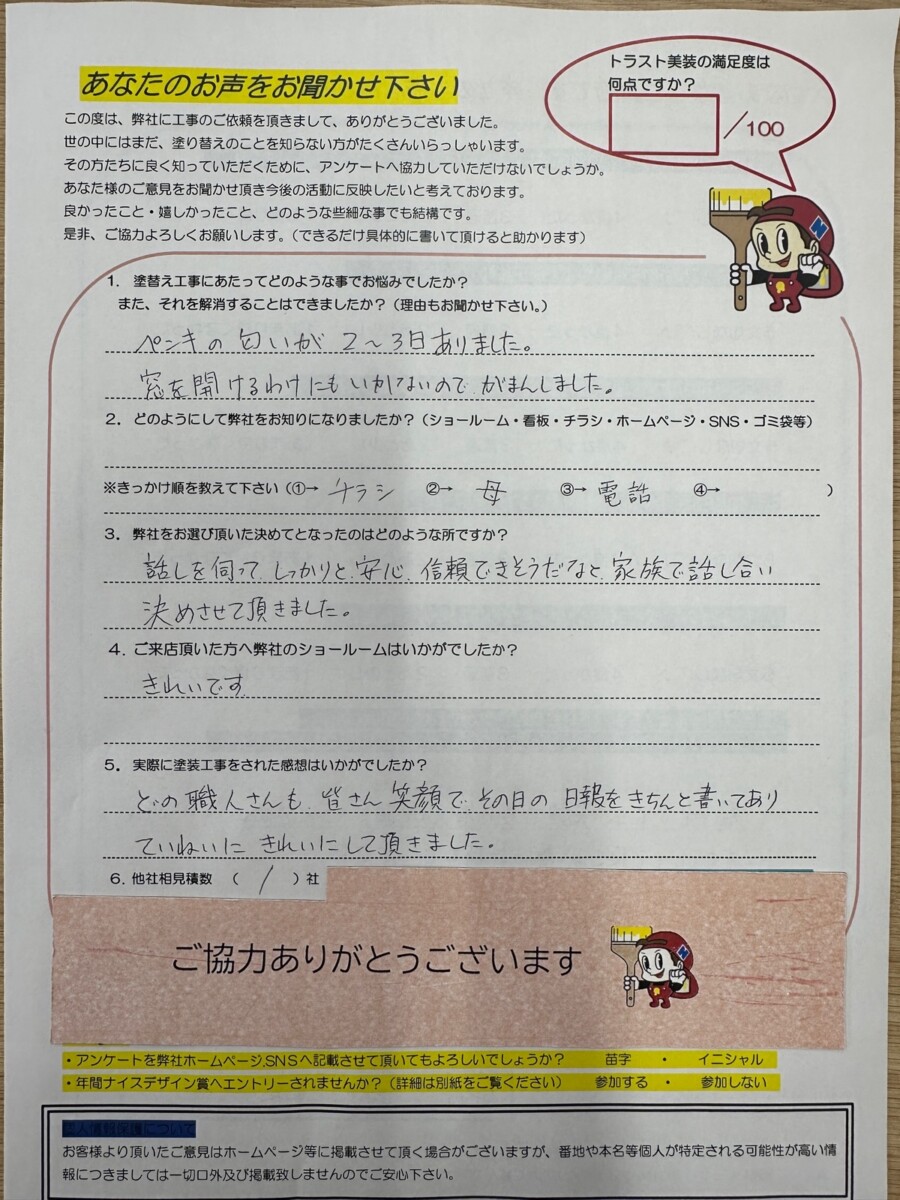 あなたのお声をお聞かせ下さい
トラスト美装の満足度は
何点ですか?
/100
この度は、弊社に工事のご依頼を頂きまして、ありがとうございました。
世の中にはまだ、塗り替えのことを知らない方がたくさんいらっしゃいます。
その方たちに良く知っていただくために、アンケートへ協力していただけないでしょうか。
あなた様のご意見をお聞かせ頂き今後の活動に反映したいと考えております。
良かったこと・嬉しかったこと、どのような些細な事でも結構です。
是非、ご協力よろしくお願いします。(できるだけ具体的に書いて頂けると助かります)
N
1. 塗替え工事にあたってどのような事でお悩みでしたか?
また、それを解消することはできましたか?(理由もお聞かせ下さい。)
ペンキの匂いが2~3日ありました。
窓を開けるわけにもいかないのでがまんしました。
2. どのようにして弊社をお知りになりましたか?(ショールーム・看板・チラシ・ホームページ・SNS・ゴミ袋等)
※きっかけ順を教えて下さい(①→ チラシ ②→ 母 ③→ 電話 ④→ )
3. 弊社をお選び頂いた決めてとなったのはどのような所ですか?
話しを伺って、しっかりと、安心、信頼できそうだなと、家族で話し合い
決めさせて頂きました。
4. ご来店頂いた方へ弊社のショールームはいかがでしたか?
きれいです
5. 実際に塗装工事をされた感想はいかがでしたか?
どの職人さんも、皆さん笑顔で、その日の日報をきちんと書いてあり
ていねいにきれいにして頂きました。
6. 他社相見積数 ( / )社
ご協力ありがとうございます
N
・アンケートを弊社ホームページ,SNSへ記載させて頂いてもよろしいでしょうか? 苗字 ・ イニシャル
・年間ナイスデザイン賞へエントリーされませんか?(詳細は別紙をご覧ください) 参加する ・ 参加しない
個人情報保護について
お客様より頂いたご意見はホームページ等に掲載させて頂く場合がございますが、番地や本名等個人が特定される可能性が高い情
報につきましては一切口外及び掲載致しませんのでご安心下さい。